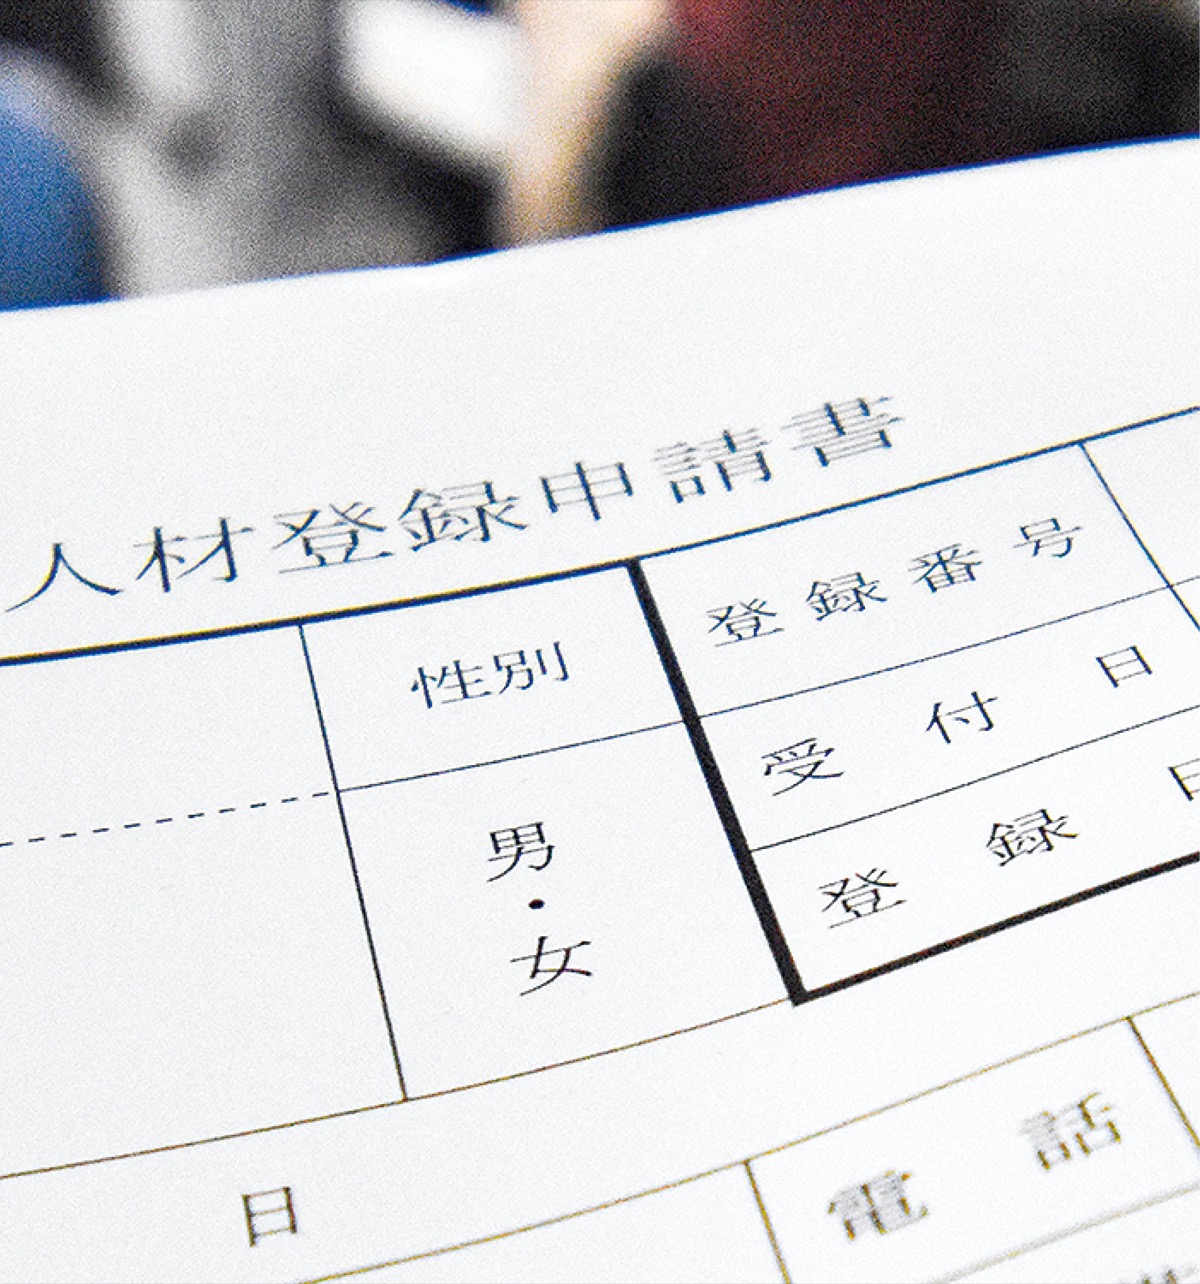 人材登録申請書
性別
登録番号
受付日
男・女
登録日
日
電話